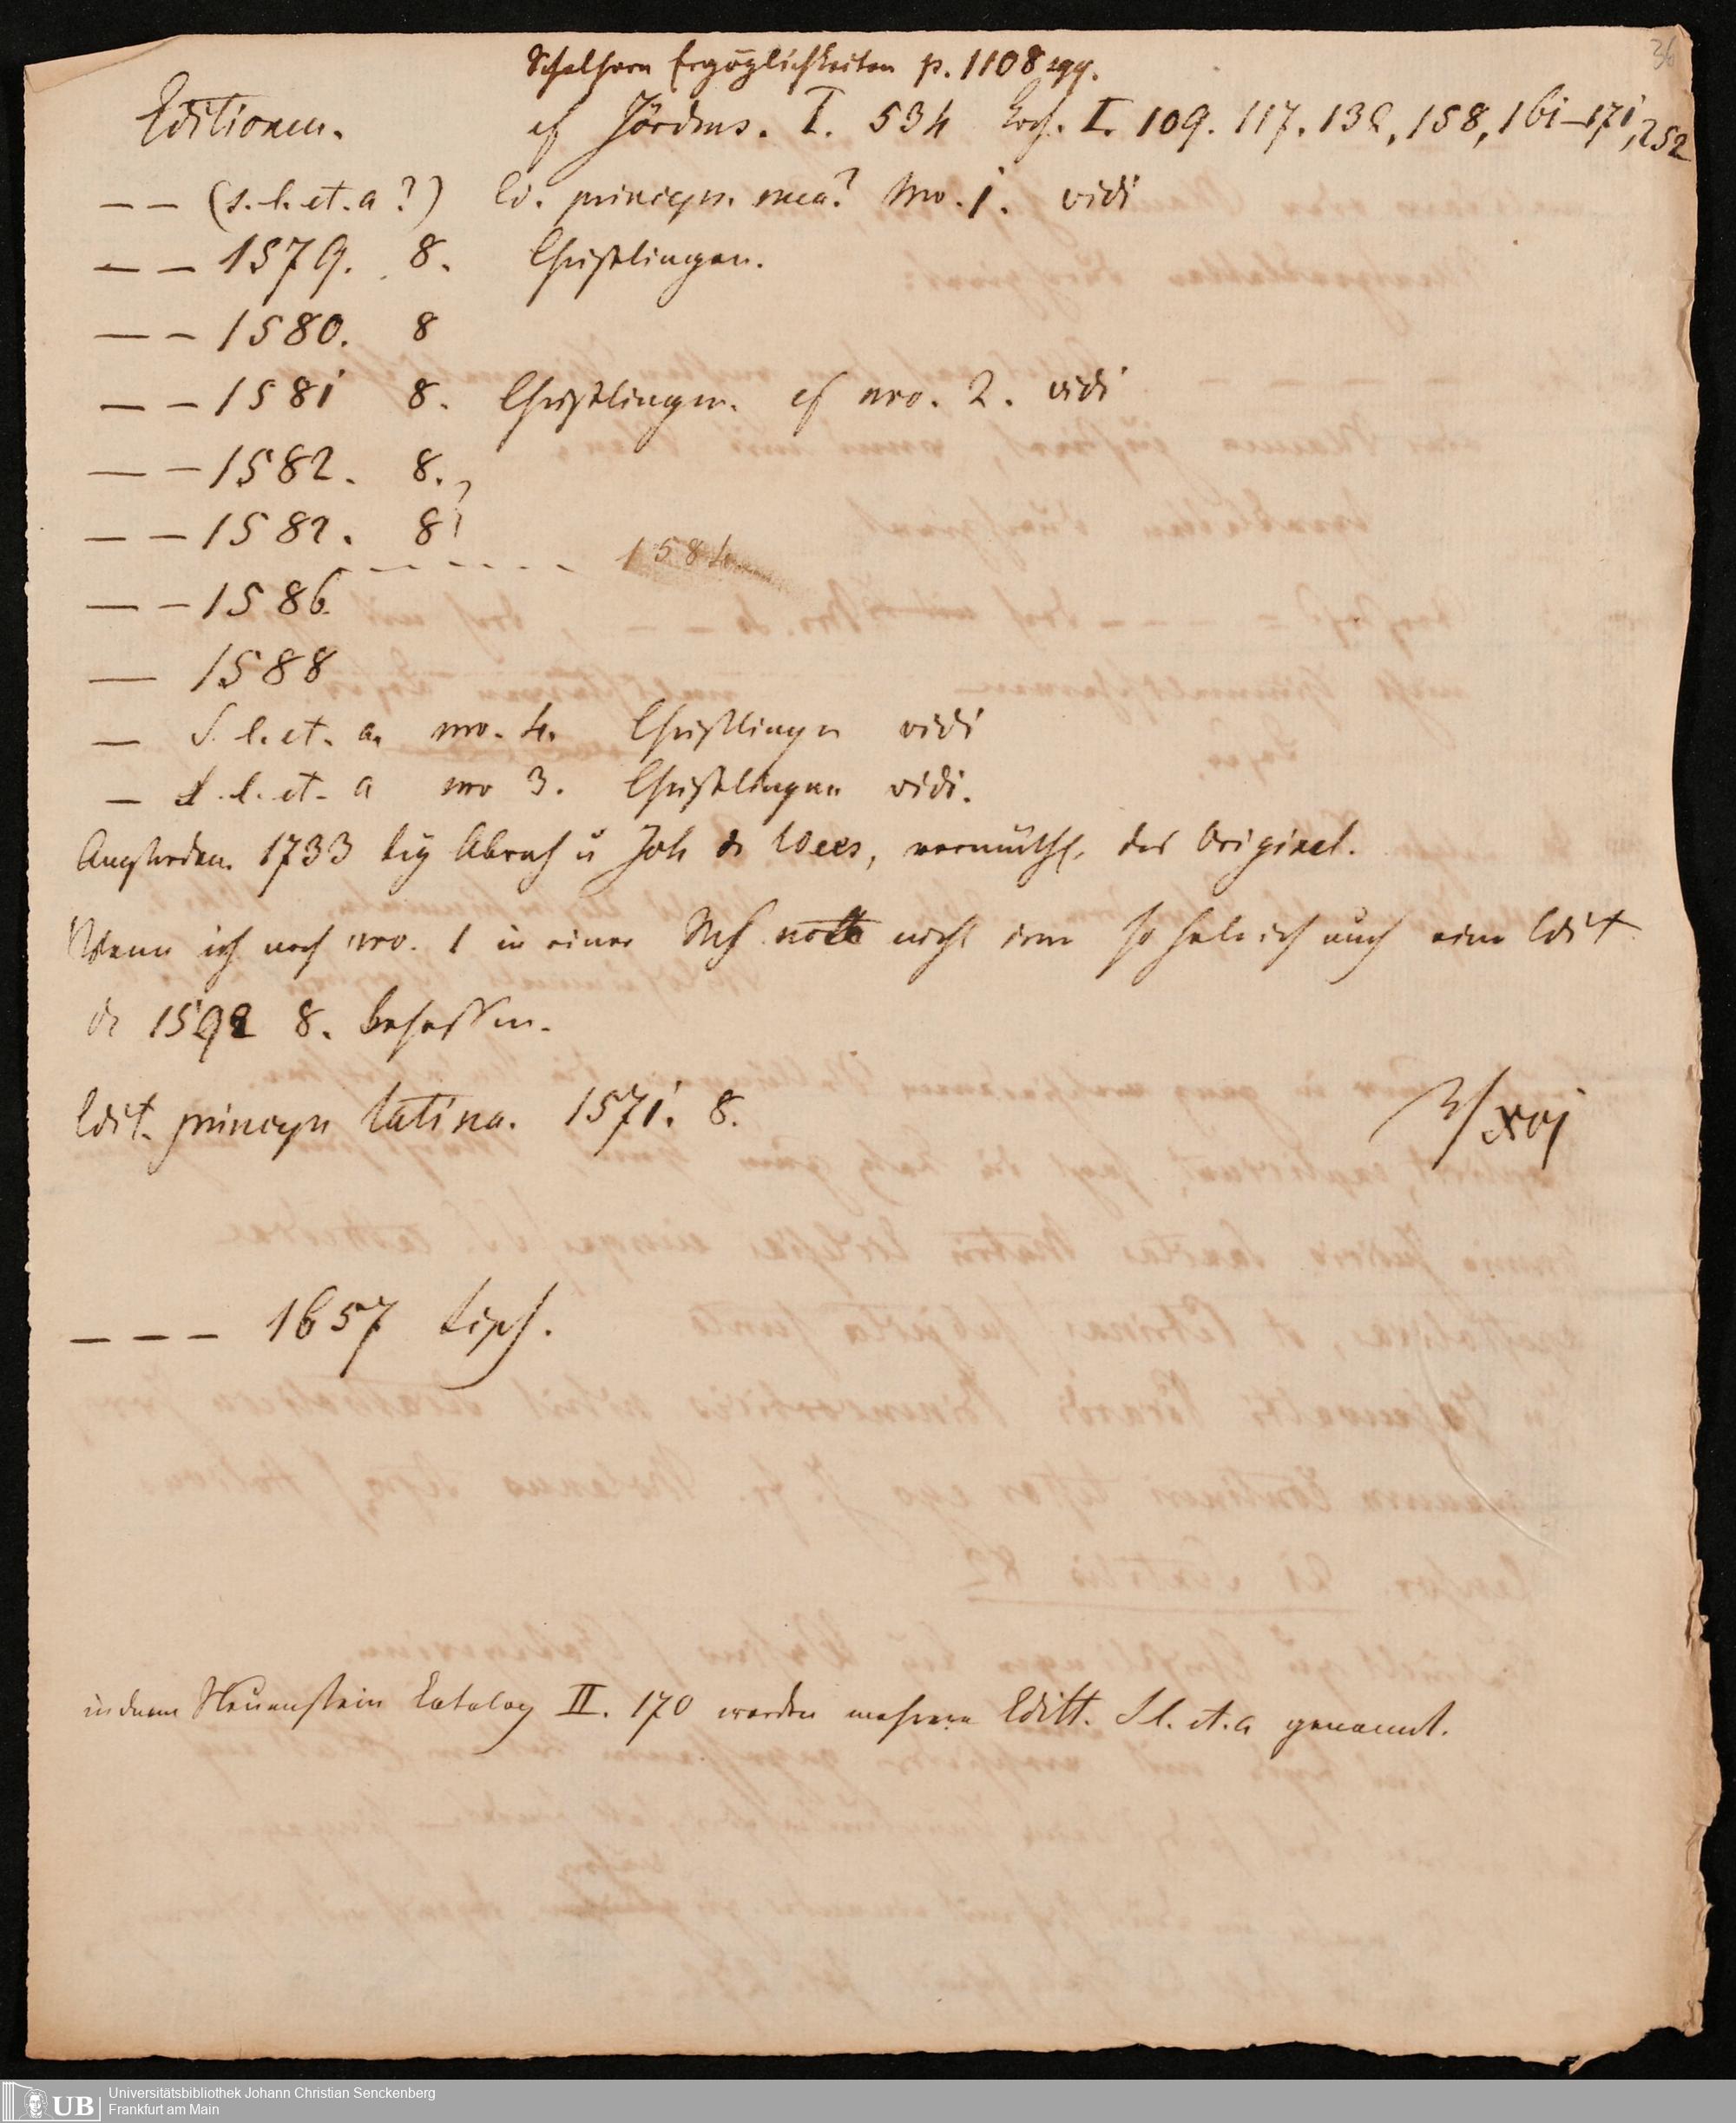 36
Schelhorn Ergözlichkeiten p. 1108 sqq.
Editionen. cf Jördens. I. 534 Koch. I. 109. 117. 132, 158, 161–171, 252
— — (s. l. et. a?) Ed. princeps. mea? Nro. 1. vidi
— — 1579. 8. Christlingen.
— — 1580. 8
— — 1581 8. Christlingen. cf nro. 2. vidi
— — 1582. 8.
— — 1582. 8?
- - - - - - 1584
— — 1586.
— 1588
— S. l. et. a. nro. 4. Christlingen vidi
— S. l. et. a nro 3. Christlingen vidi.
Amsterdam. 1733 bey Abrah u Joh de Wees, vermuthl. das Original.
Wenn ich nach nro. 1 in einer nicht irre so habe ich auch eine Edit
de 1592 8. besessen.
Edit. princeps latina. 1571. 8.
— — — 1657 Lips.
in dem Neuenstein Catalog II. 170 werden mehrere Editt. S l. et. a genannt.
UB Universitätsbibliothek Johann Christian Senckenberg
Frankfurt am Main